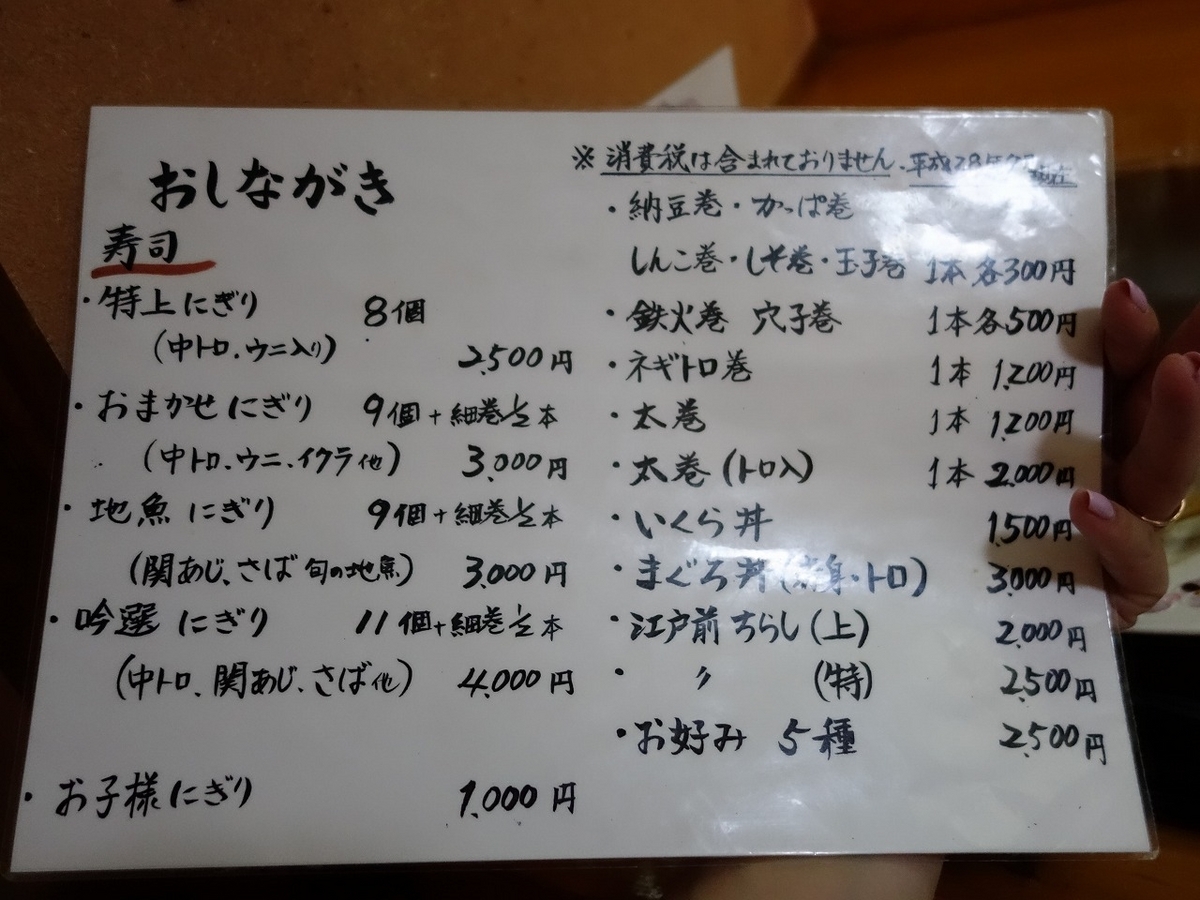 おしながき
寿司
・特上にぎり 8個
(中トロ、ウニ入り) 2,500円
・おまかせにぎり 9個+細巻½本
(中トロ、ウニ、イクラ他) 3,000円
・地魚にぎり 9個+細巻½本
(関あじ、さば旬の地魚) 3,000円
・吟選にぎり 11個+細巻½本
(中トロ、関あじ、さば他) 4,000円
・お子様にぎり 1,000円
※消費税は含まれておりません、平成28年 現在
・納豆巻・かっぱ巻
しんこ巻・しそ巻・玉子巻 1本各300円
・鉄火巻 穴子巻 1本各500円
・ネギトロ巻 1本 1,200円
・太巻 1本 1,200円
・太巻(トロ入) 1本 2,000円
・いくら丼 1,500円
・まぐろ丼(赤身・トロ) 3,000円
・江戸前ちらし(上) 2,000円
・ 〃 (特) 2,500円
・お好み 5種 2,500円